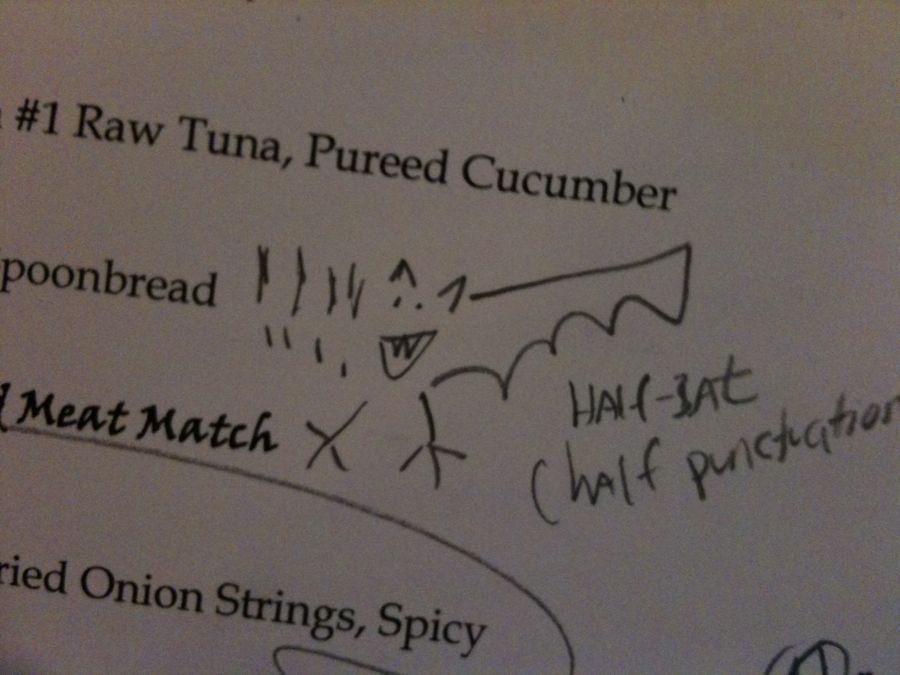 #1 Raw Tuna, Pureed Cucumber
poonbread
Meat Match
HAlf-BAt
(half punctuation
ried Onion Strings, Spicy